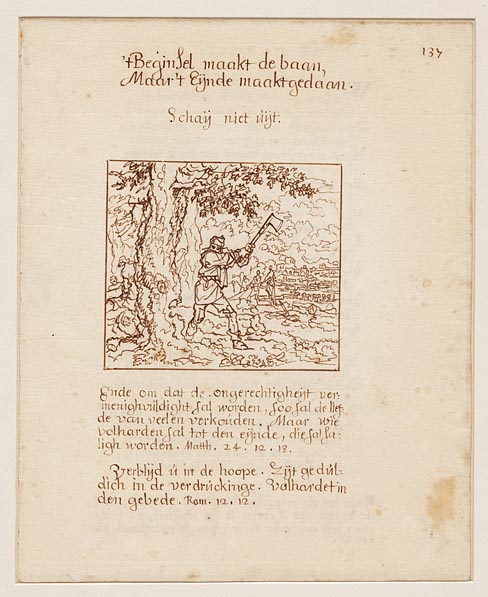 137
't Beginsel maakt de baan,
Maar 't Eijnde maakt gedaan.
Schaij niet uijt.
Ende om dat de ongerechtigheijt ver-
menighvuldight sal worden, soo sal de lief-
de van veelen verkouden. Maar wie
volharden sal tot den eijnde, die sal sa-
ligh worden. Matth. 24. 12. 13.
Verblijd u in de hoope. Zijt gedul-
dich in de verdruckinge. Volhardet in
den gebede. Rom. 12. 12.